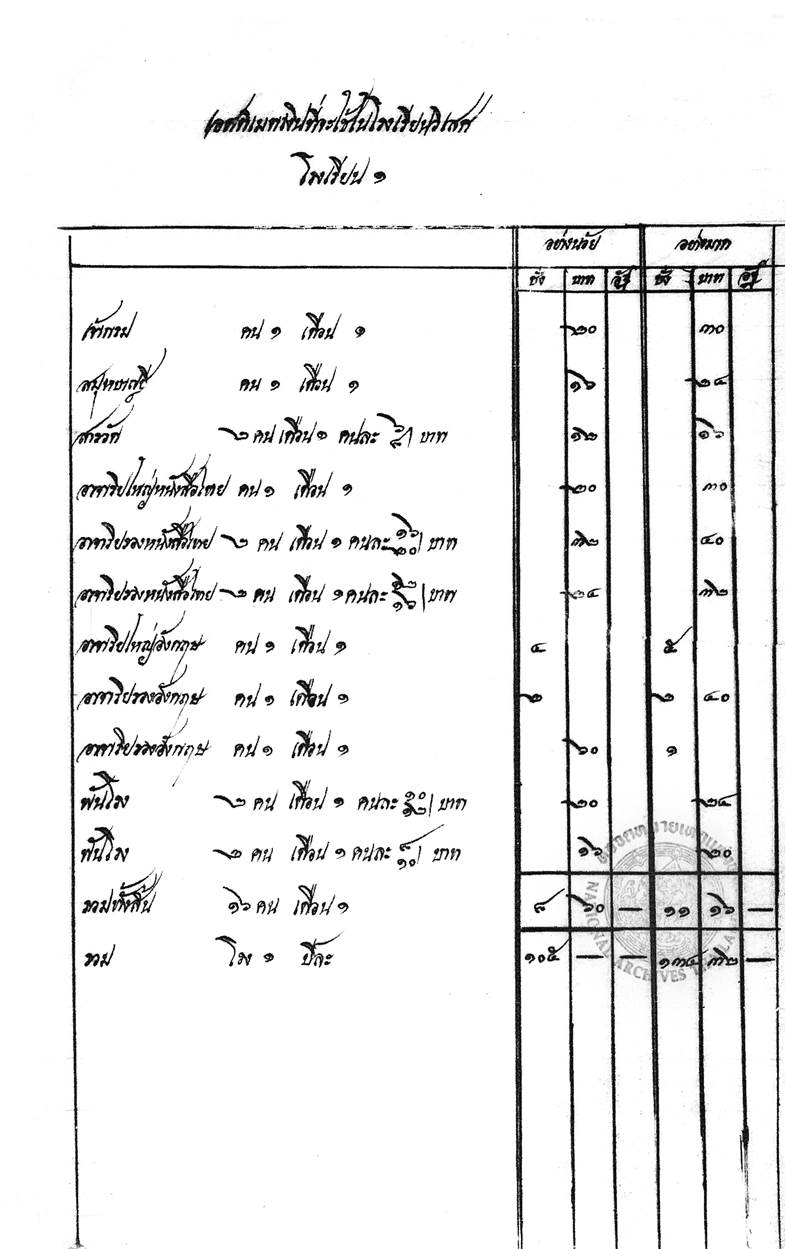 เอศติเมตเงินที่จะใช้ในโรงเรียนวิเสศ
โรงเรียน ๑
อย่างน้อย อย่างมาก
ชั่ง บาท อัฐ ชั่ง บาท อัฐ
เจ้ากรม คน ๑ เดือน ๑ ๒๐ ๓๐
สมุหบาญชี คน ๑ เดือน ๑ ๑๖ ๒๔
สารวัด ๒ คน เดือน ๑ คนละ ๖ ๘ บาท ๑๒ ๑๖
อาจาริยใหญ่หนังสือไทย คน ๑ เดือน ๑ ๒๐ ๓๐
อาจาริยรองหนังสือไทย ๒ คน เดือน ๑ คนละ ๑๖ ๒๐ บาท ๓๒ ๔๐
อาจาริยรองหนังสือไทย ๒ คน เดือน ๑ คนละ ๑๒ ๑๖ บาท ๒๔ ๓๒
อาจาริยใหญ่อังกฤษ คน ๑ เดือน ๑ ๔ ๕
อาจาริยรองอังกฤษ คน ๑ เดือน ๑ ๒ ๒ ๔๐
อาจาริยรองอังกฤษ คน ๑ เดือน ๑ ๖๐ ๑
พันโรง ๒ คน เดือน ๑ คนละ ๑๐ ๑๒ บาท ๒๐ ๒๔
พันโรง ๒ คน เดือน ๑ คนละ ๘ ๑๐ บาท ๑๖ ๒๐
รวมทั้งสิ้น ๑๖ คน เดือน ๑ ๘ ๖๐ — ๑๑ ๑๖ —
รวม โรง ๑ ปีละ ๑๐๕ — — ๑๓๔ ๓๒ —
NATIONAL ARCHIVES